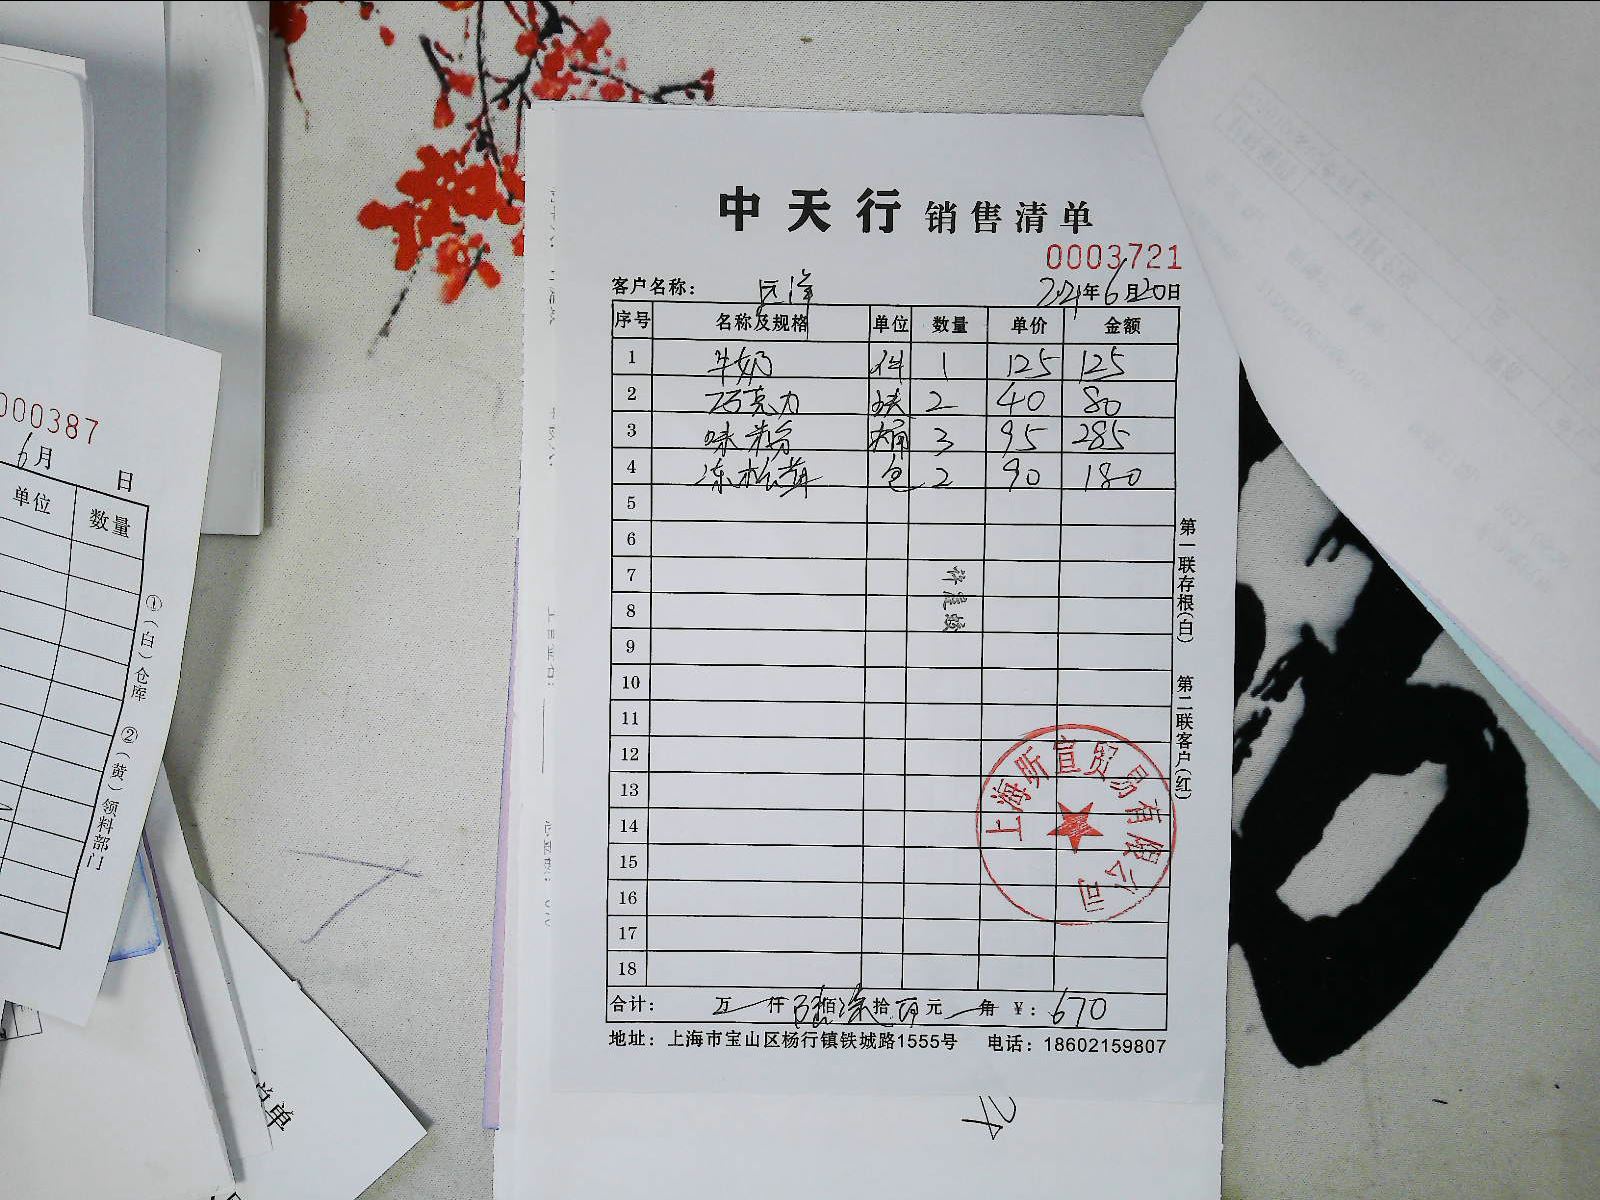 中天行 销售清单
0003721
客户名称： 远洋 2021年6月20日
序号 名称及规格 单位 数量 单价 金额
1 牛奶 件 1 125 125
2 巧克力 块 2 40 80
3 味粉 桶 3 95 285
4 冻松茸 包 2 90 180
5
6
7
8
9
10
11
12
13
14
15
16
17
18
合计： 万 仟 陆佰柒拾 元 角 ￥：670
地址：上海市宝山区杨行镇铁城路1555号 电话：18602159807
第一联存根(白) 第二联客户(红)
上海昕宣贸易有限公司
000387
6月 日
单位 数量
①（白）仓库 ②（黄）领料部门
单